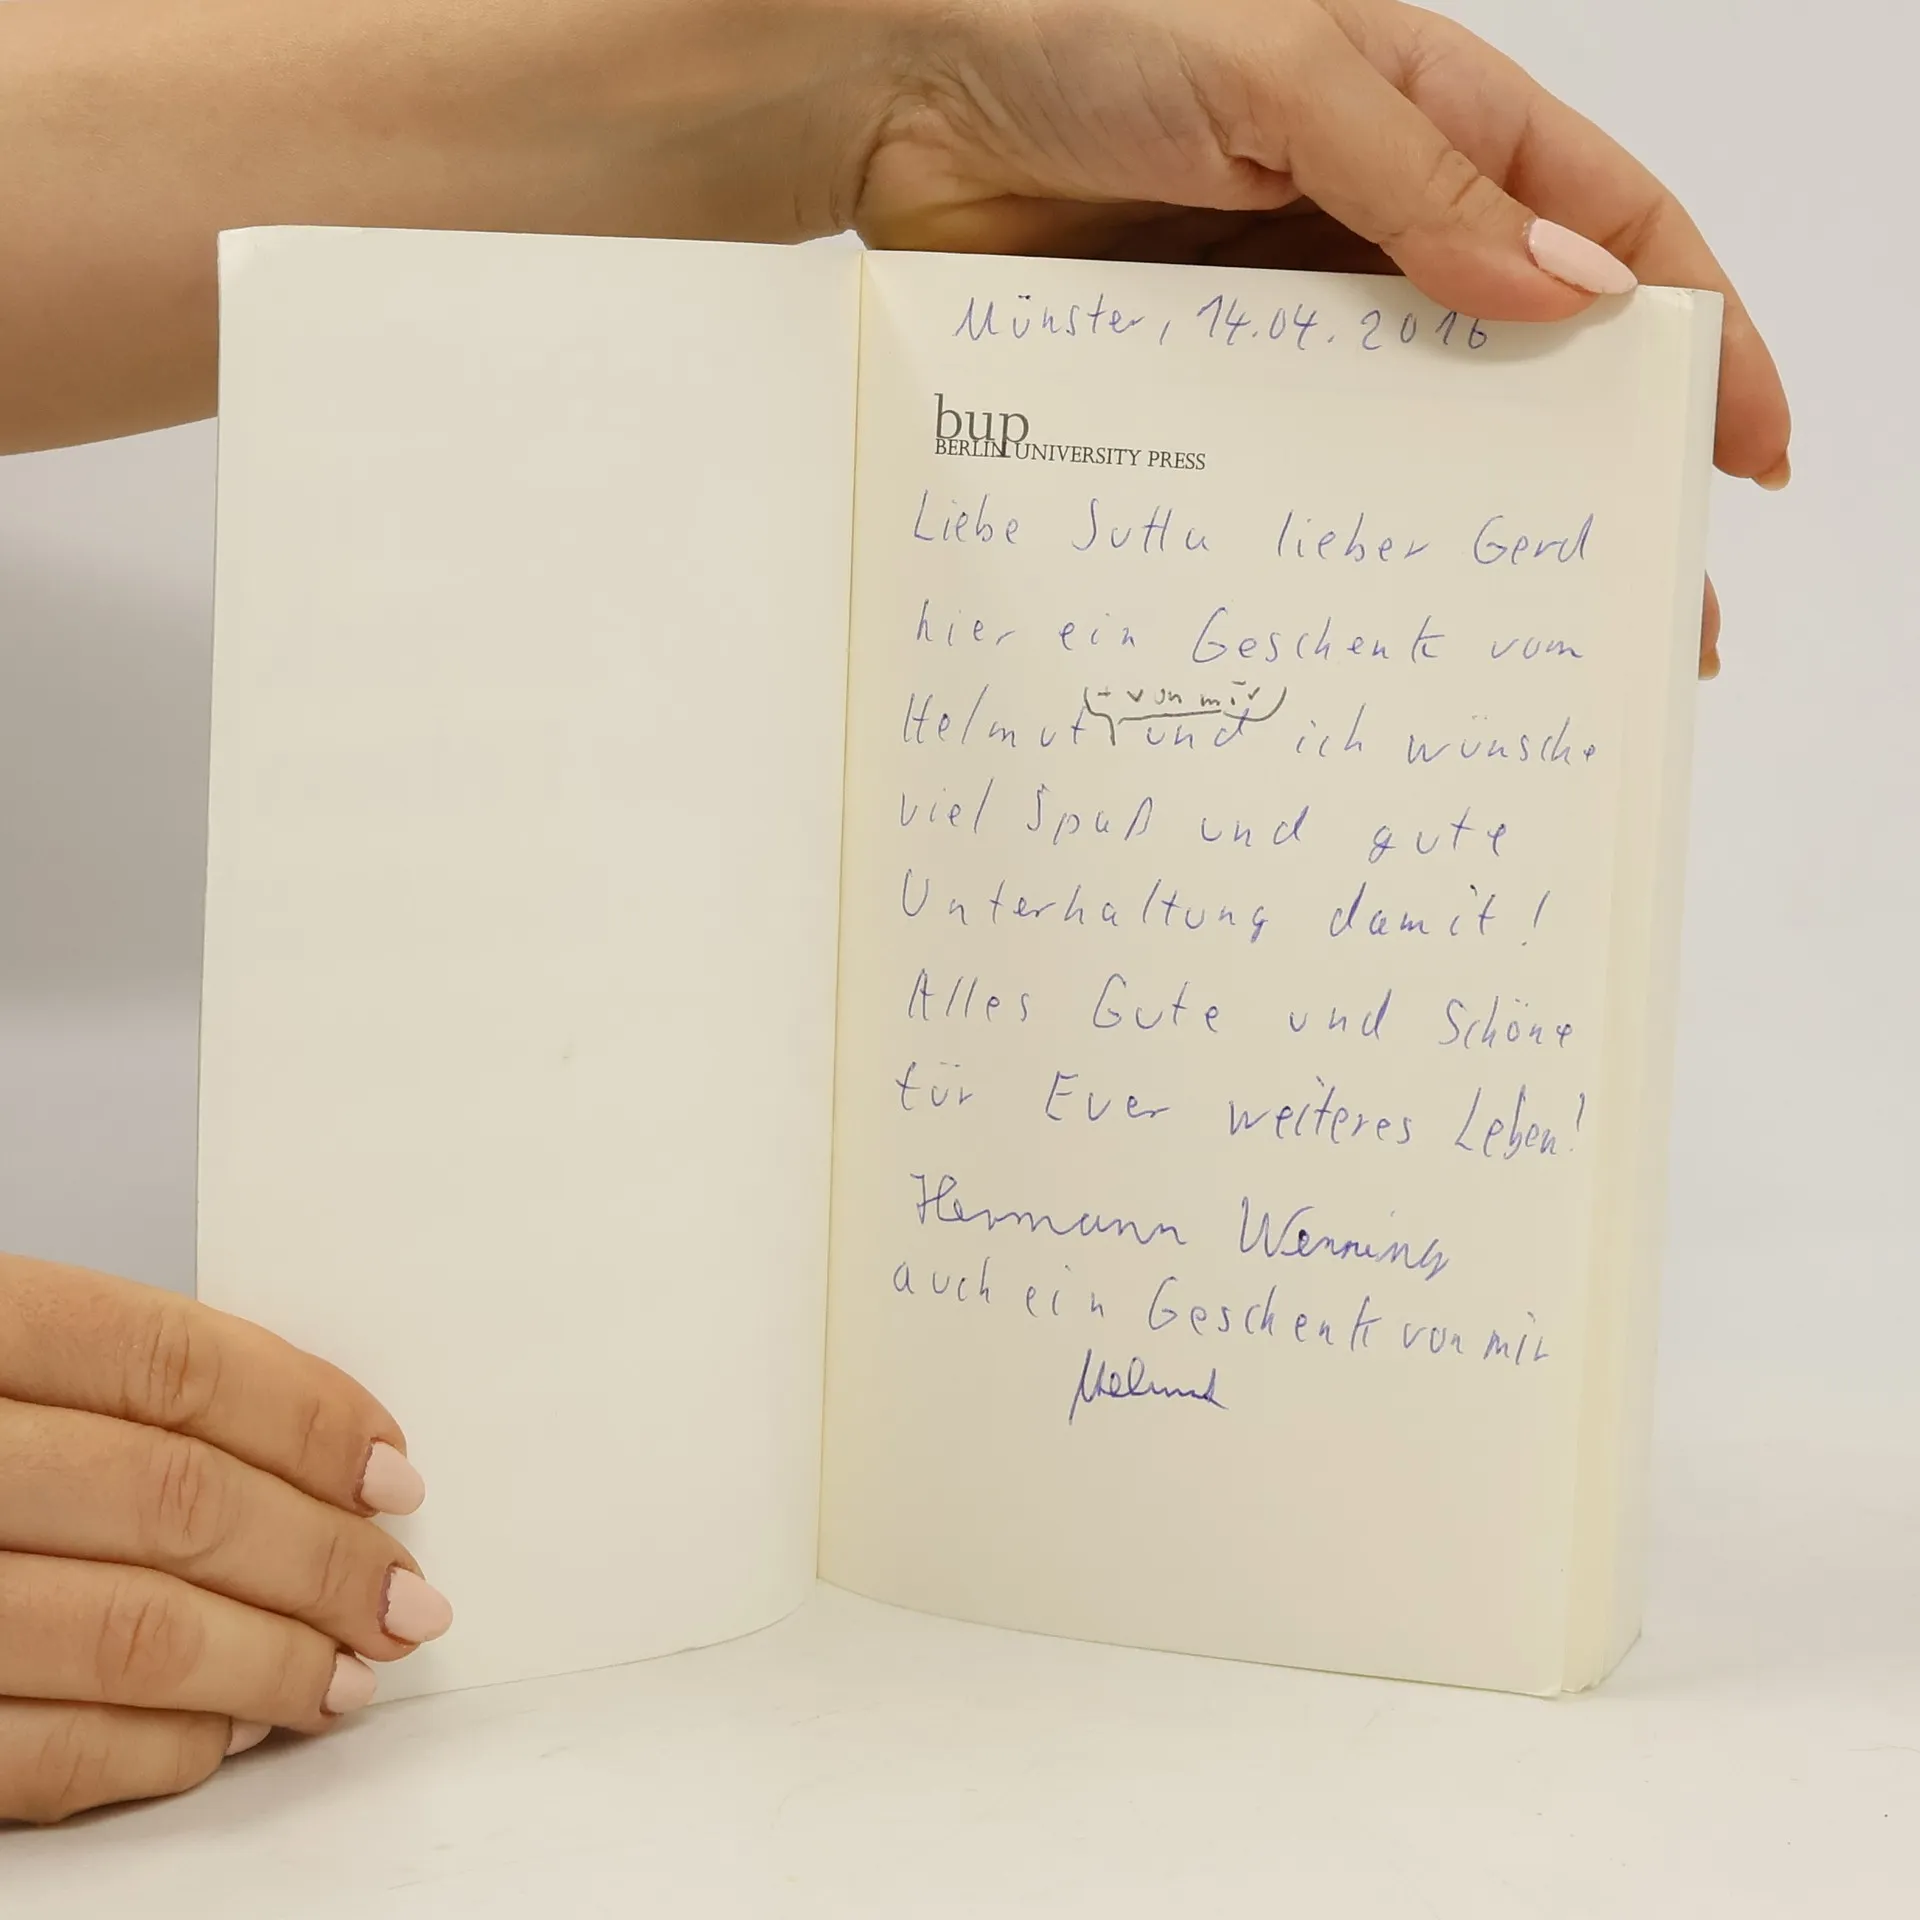 Münster, 14.04.2016
bup
BERLIN UNIVERSITY PRESS
Liebe Jutta lieber Gerd
hier ein Geschenk vom
(+ von mir)
Helmut und ich wünsche
viel Spaß und gute
Unterhaltung damit!
Alles Gute und Schöne
für Euer weiteres Leben!
Hermann Wenning
auch ein Geschenk von mir
Helmut